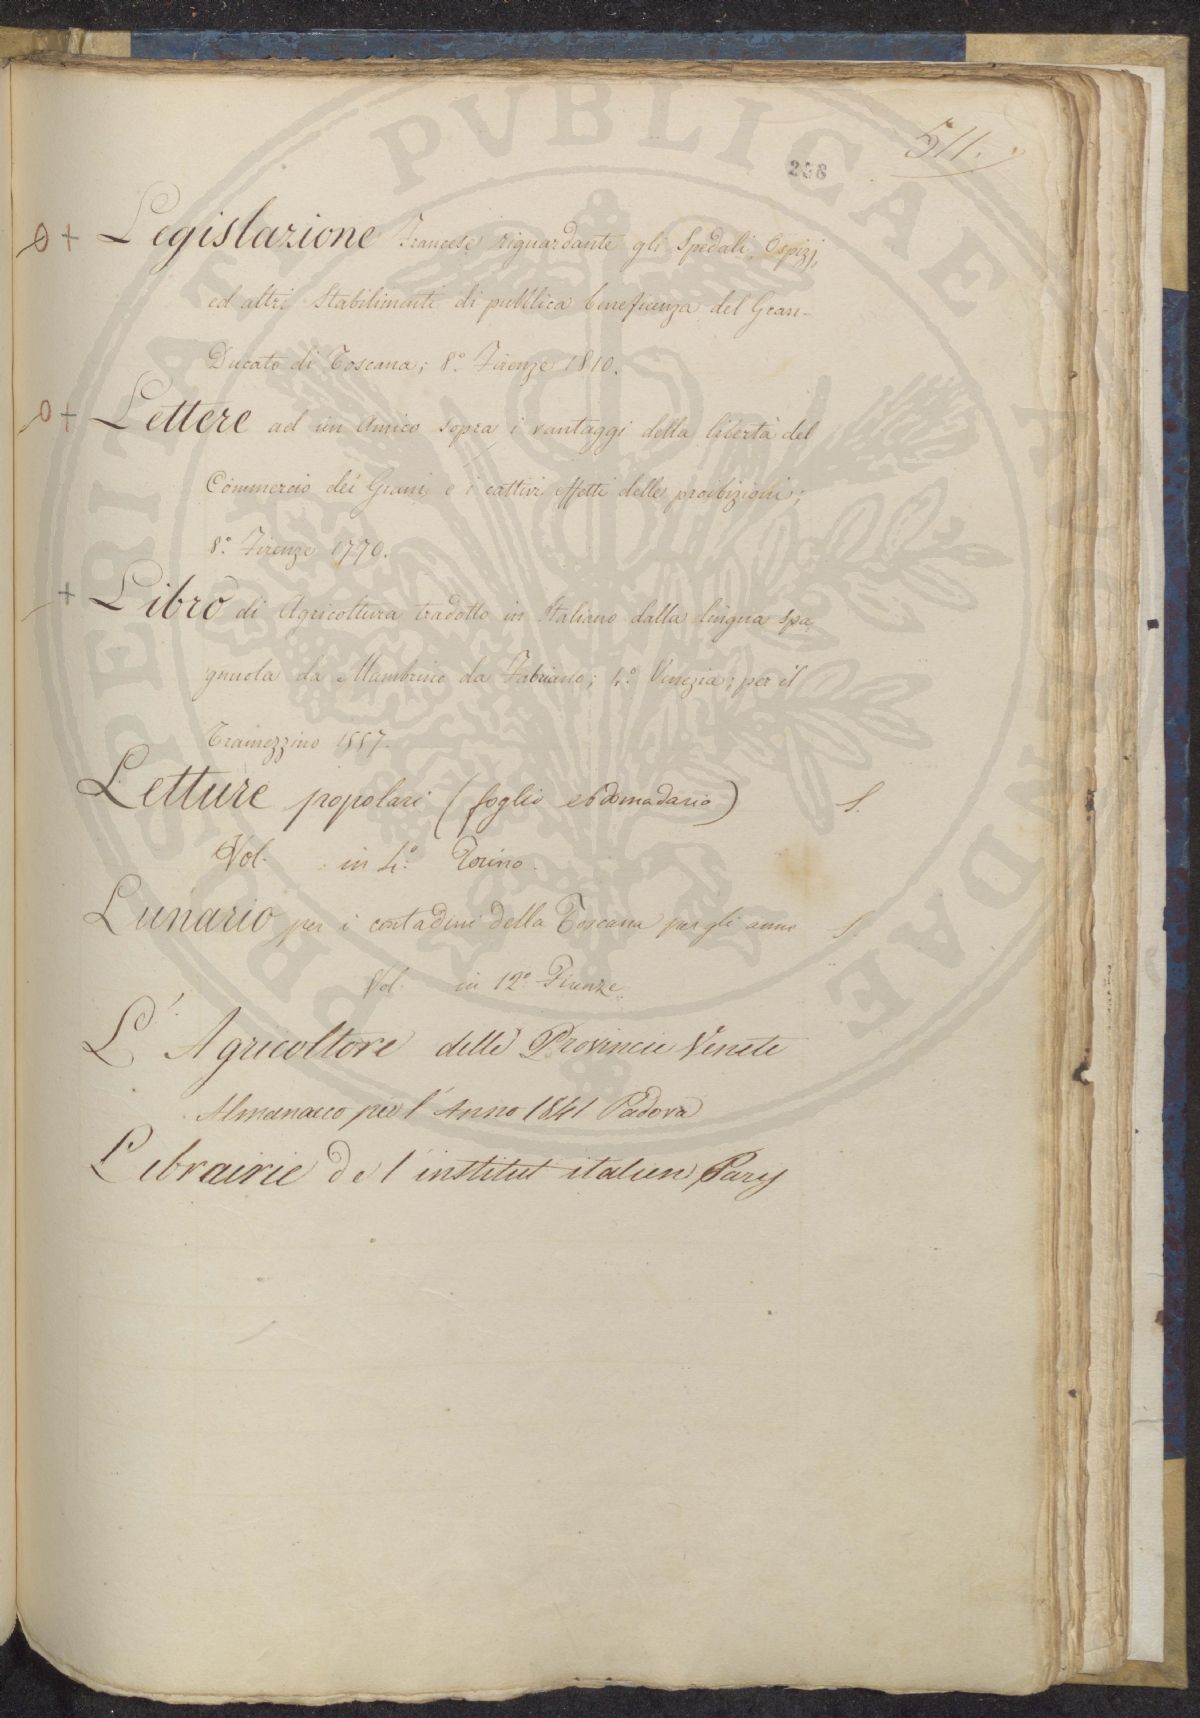 511.
258
Legislazione Francese riguardante gli Spedali, Ospizj,
ed altri Stabilimenti di pubblica beneficenza del Gran-
Ducato di Toscana; 8.° Firenze 1810.
+ Lettere ad un Amico sopra i vantaggi della libertà del
Commercio dei Grani, e i cattivi effetti delle proibizioni;
8.° Firenze 1770.
+ Libro di Agricoltura tradotto in Italiano dalla lingua spa
gnuola da Mambrino da Fabriano; 4.° Venezia; per il
Tramezzino 1557.
Letture popolari (foglio ebdomadario) S.
Vol. in 4.° Torino.
Lunario per i contadini della Toscana per gli anni S.
Vol. in 12.° Firenze
L'Agricoltore delle Provincie Venete
Almanacco per l'Anno 1841 Padova
Librairie de l'institut italien Pary
PROSPERITATI PVBLICAE AVGENDAE